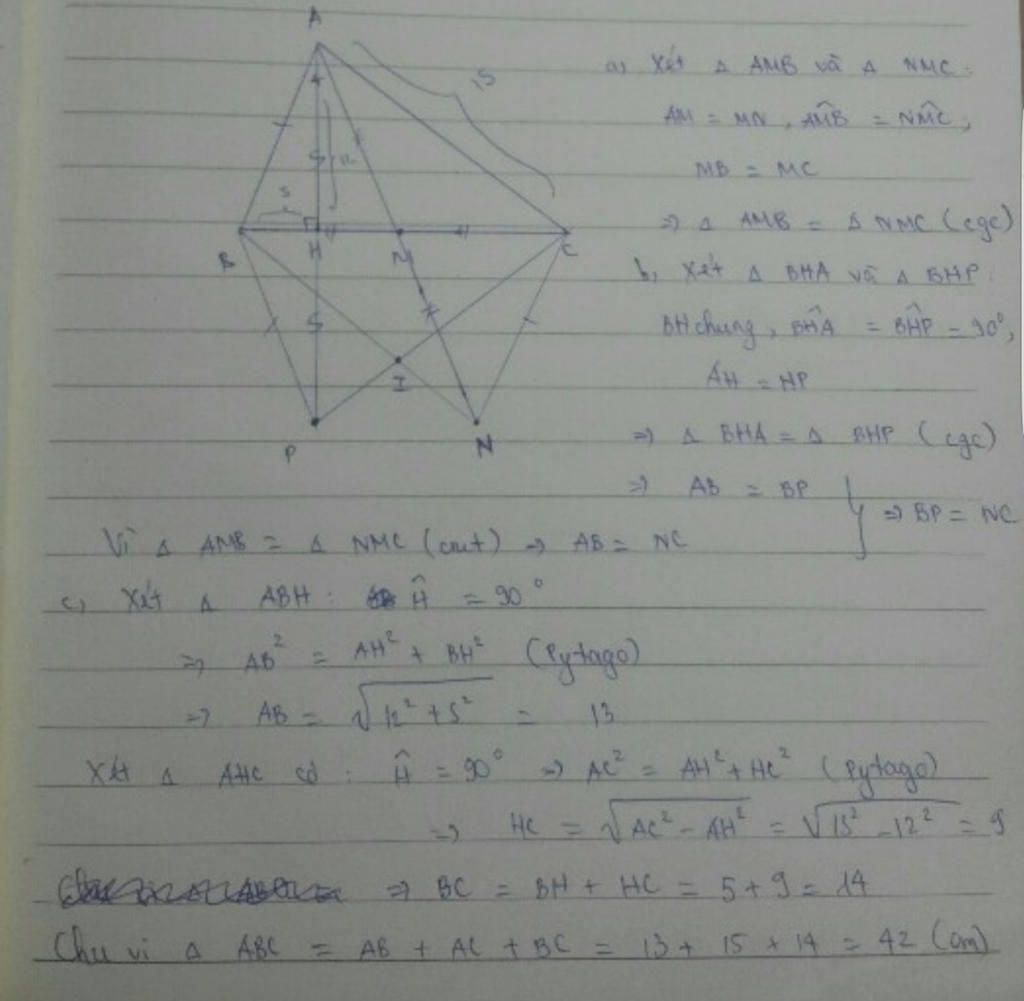 A
15
12
5
B
H
M
C
I
P
N
a, Xét Δ AMB và Δ NMC:
AM = MN, AM̂B = NM̂C,
MB = MC
=> Δ AMB = Δ NMC (cgc)
b, Xét Δ BHA và Δ BHP:
BH chung, BĤA = BĤP = 90°,
AH = HP
=> Δ BHA = Δ BHP (cgc)
=> AB = BP
} => BP = NC
Vì Δ AMB = Δ NMC (cmt) => AB = NC
c, Xét Δ ABH: Ĥ = 90°
=> AB² = AH² + BH² (Pytago)
=> AB = √(12² + 5²) = 13
Xét Δ AHC có: Ĥ = 90° => AC² = AH² + HC² (Pytago)
=> HC = √(AC² - AH²) = √(15² - 12²) = 9
=> BC = BH + HC = 5 + 9 = 14
Chu vi Δ ABC = AB + AC + BC = 13 + 15 + 14 = 42 (cm)